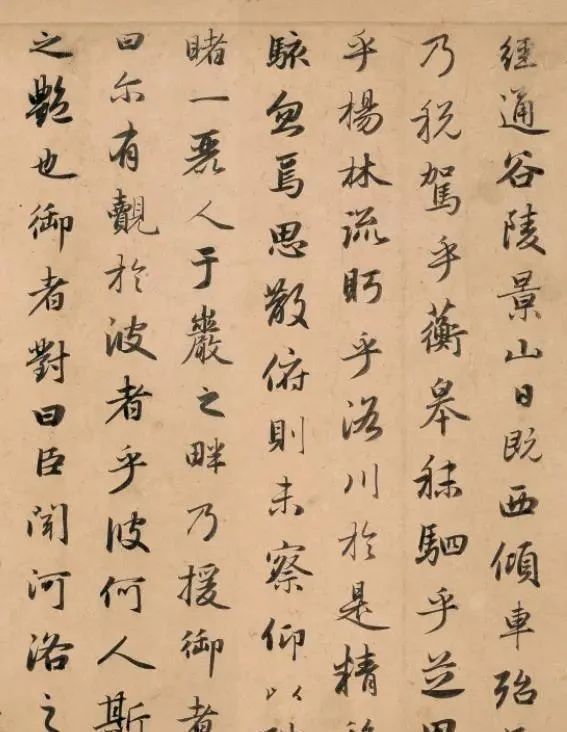 經通谷陵景山日既西傾車殆
乃税駕乎蘅皋秣駟乎芝田
乎楊林流眄乎洛川於是精
駭忽焉思散俯則未察仰以
睹一麗人于巖之畔乃援御者
曰尔有覿於彼者乎彼何人斯
之豔也御者對曰臣聞河洛之